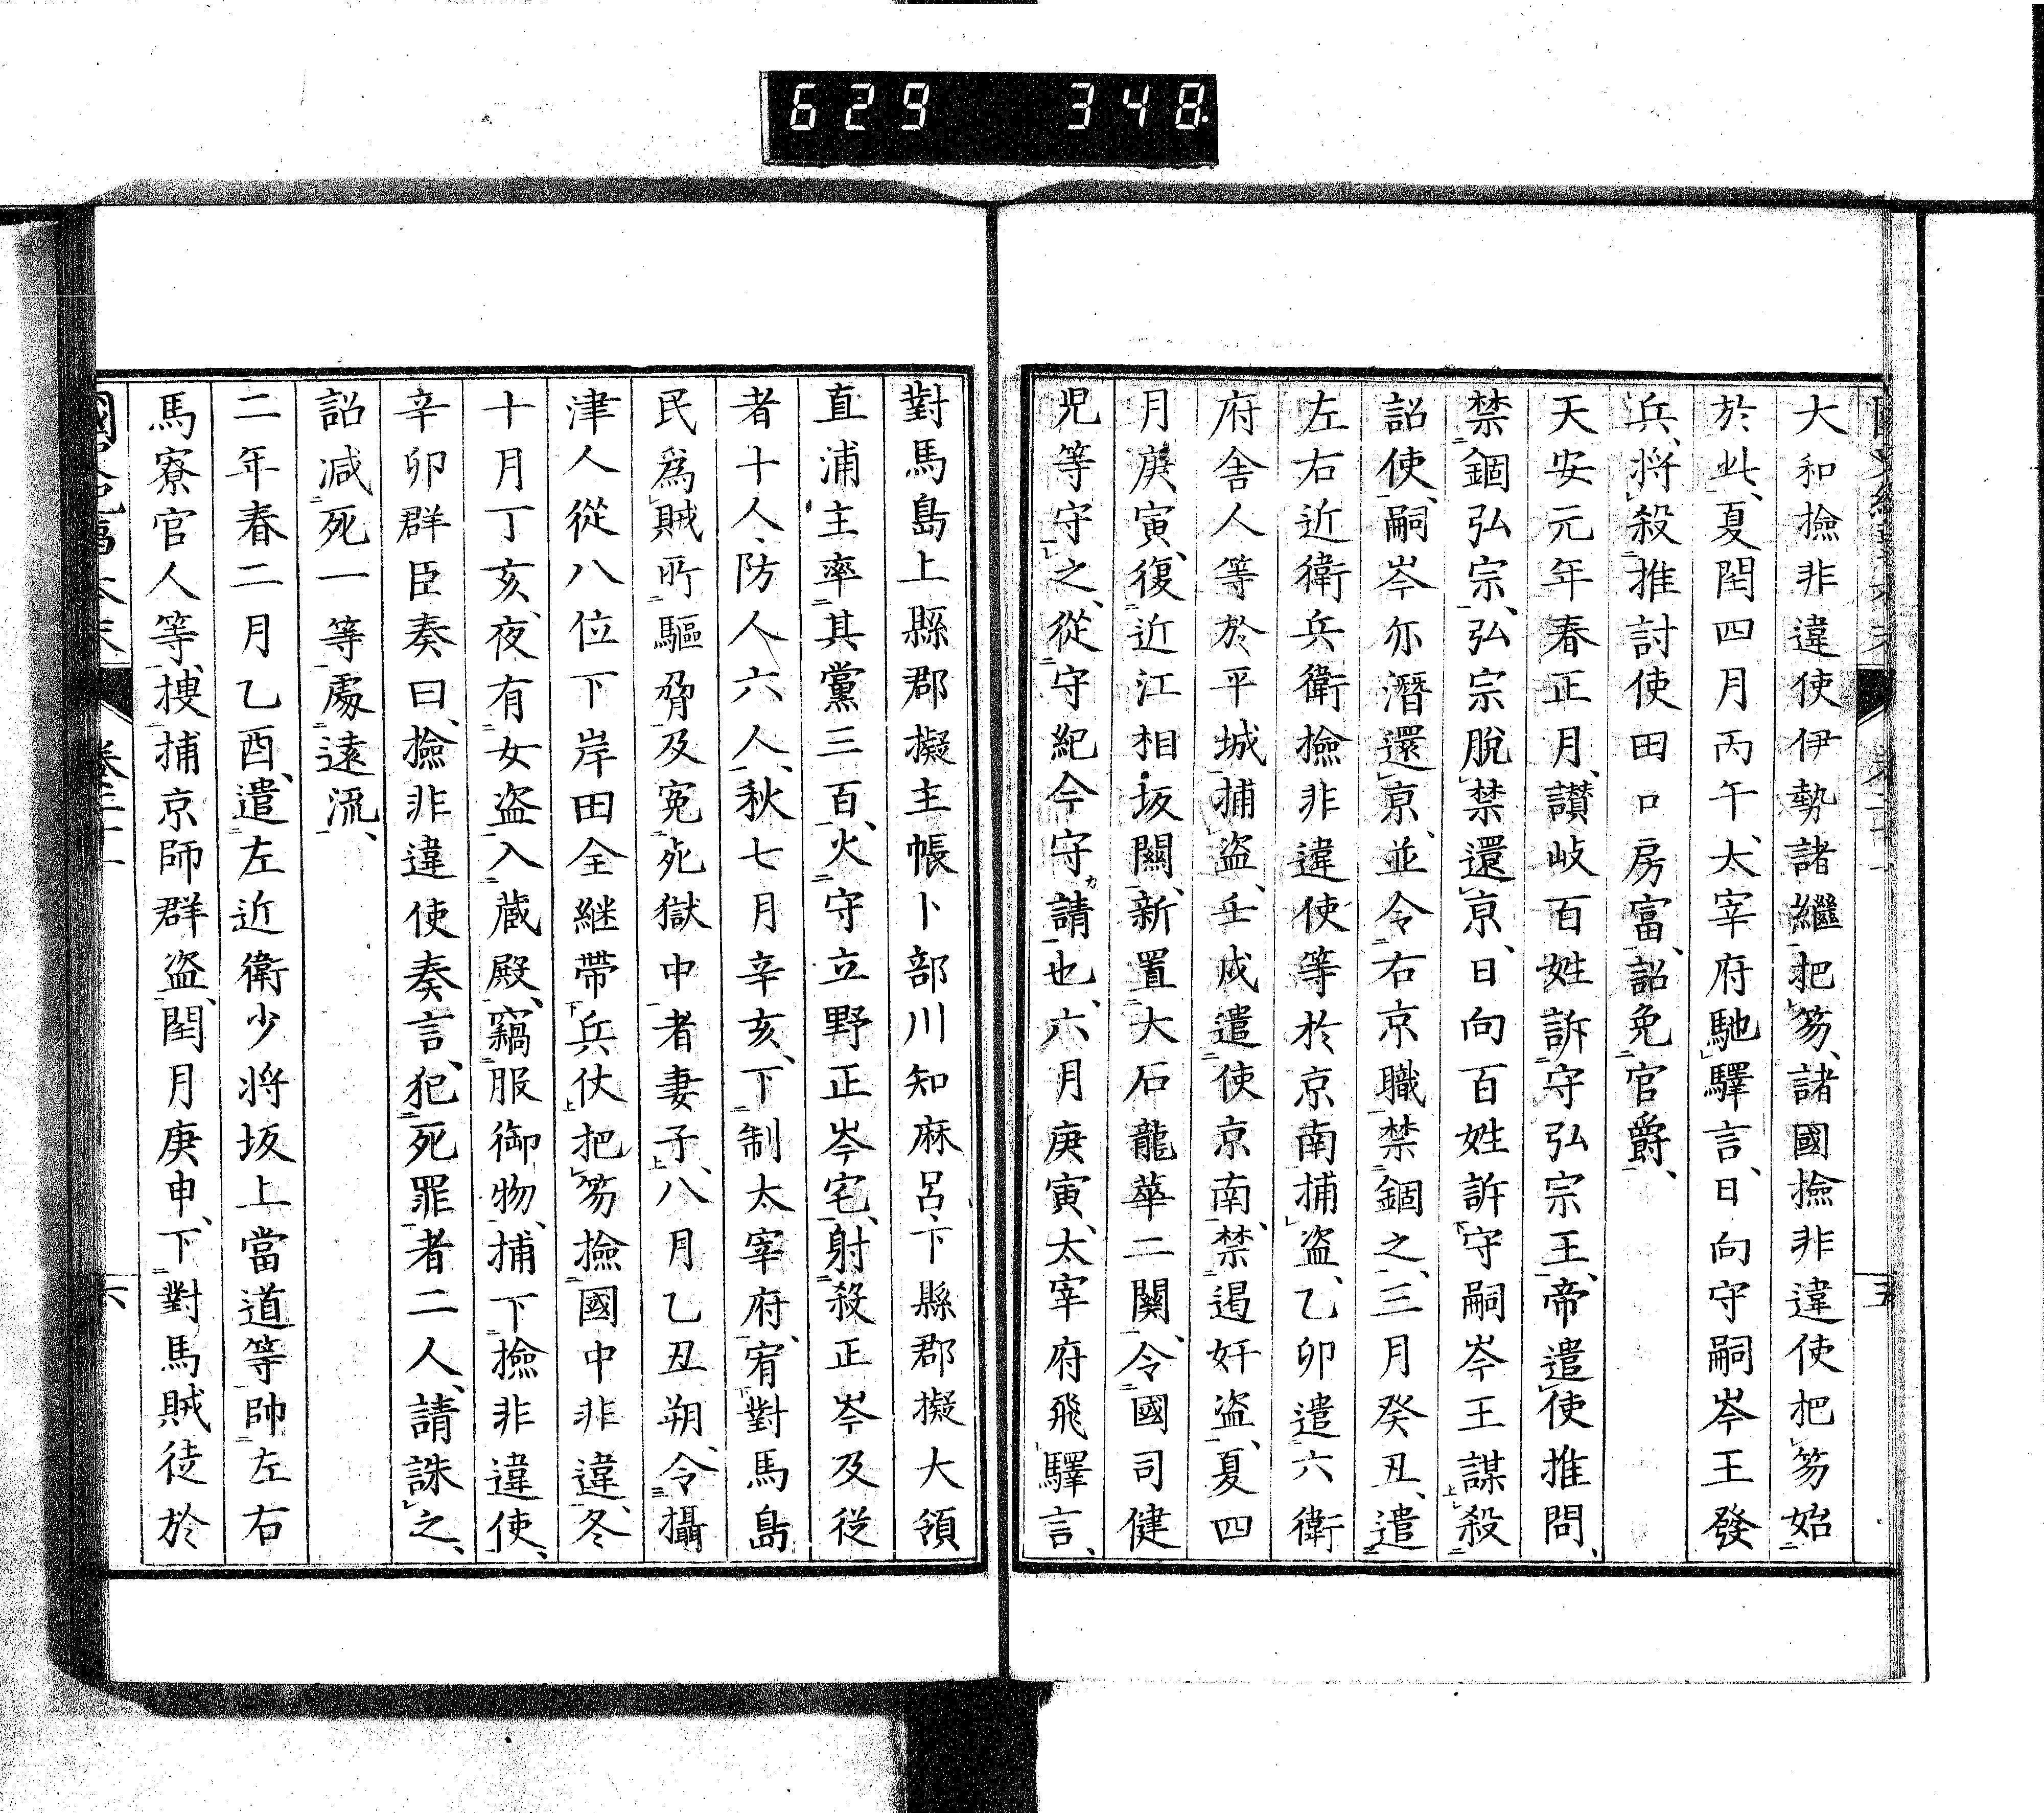 629 348
大和撿非違使伊勢諸繼把笏、諸國撿非違使把笏始
於此、夏閏四月丙午、太宰府馳驛言、日向守嗣岑王發
兵、将殺推討使田口房富、詔免官爵、
天安元年春正月、讃岐百姓訴守弘宗王、帝遣使推問、
禁錮弘宗、弘宗脫禁還京、日向百姓訴守嗣岑王謀殺
詔使、嗣岑亦潛還京、並令右京職禁錮之、三月癸丑、遣
左右近衛兵衛撿非違使等於京南捕盗、乙卯遣六衛
府舎人等於平城捕盗、壬戌遣使京南、禁遏奸盗、夏四
月庚寅、復近江相坂關、新置大石龍華二關、令國司健
児等守之、從守紀今守請也、六月庚寅、太宰府飛驛言、
對馬島上縣郡擬主帳卜部川知麻呂、下縣郡擬大領
直浦主率其黨三百、火守立野正岑宅、射殺正岑及從
者十人、防人六人、秋七月辛亥、下制太宰府、宥對馬島
民爲賊所驅脅及寃死獄中者妻子、八月乙丑朔、令攝
津人從八位下岸田全継帶兵仗把笏撿國中非違、冬
十月丁亥、夜有女盗入蔵殿、竊服御物、捕下撿非違使、
辛卯群臣奏曰、撿非違使奏言、犯死罪者二人、請誅之、
詔減死一等、處遠流、
二年春二月乙酉、遣左近衛少将坂上當道等帥左右
馬寮官人等、捜捕京師群盗、閏月庚申、下對馬賊徒於
六